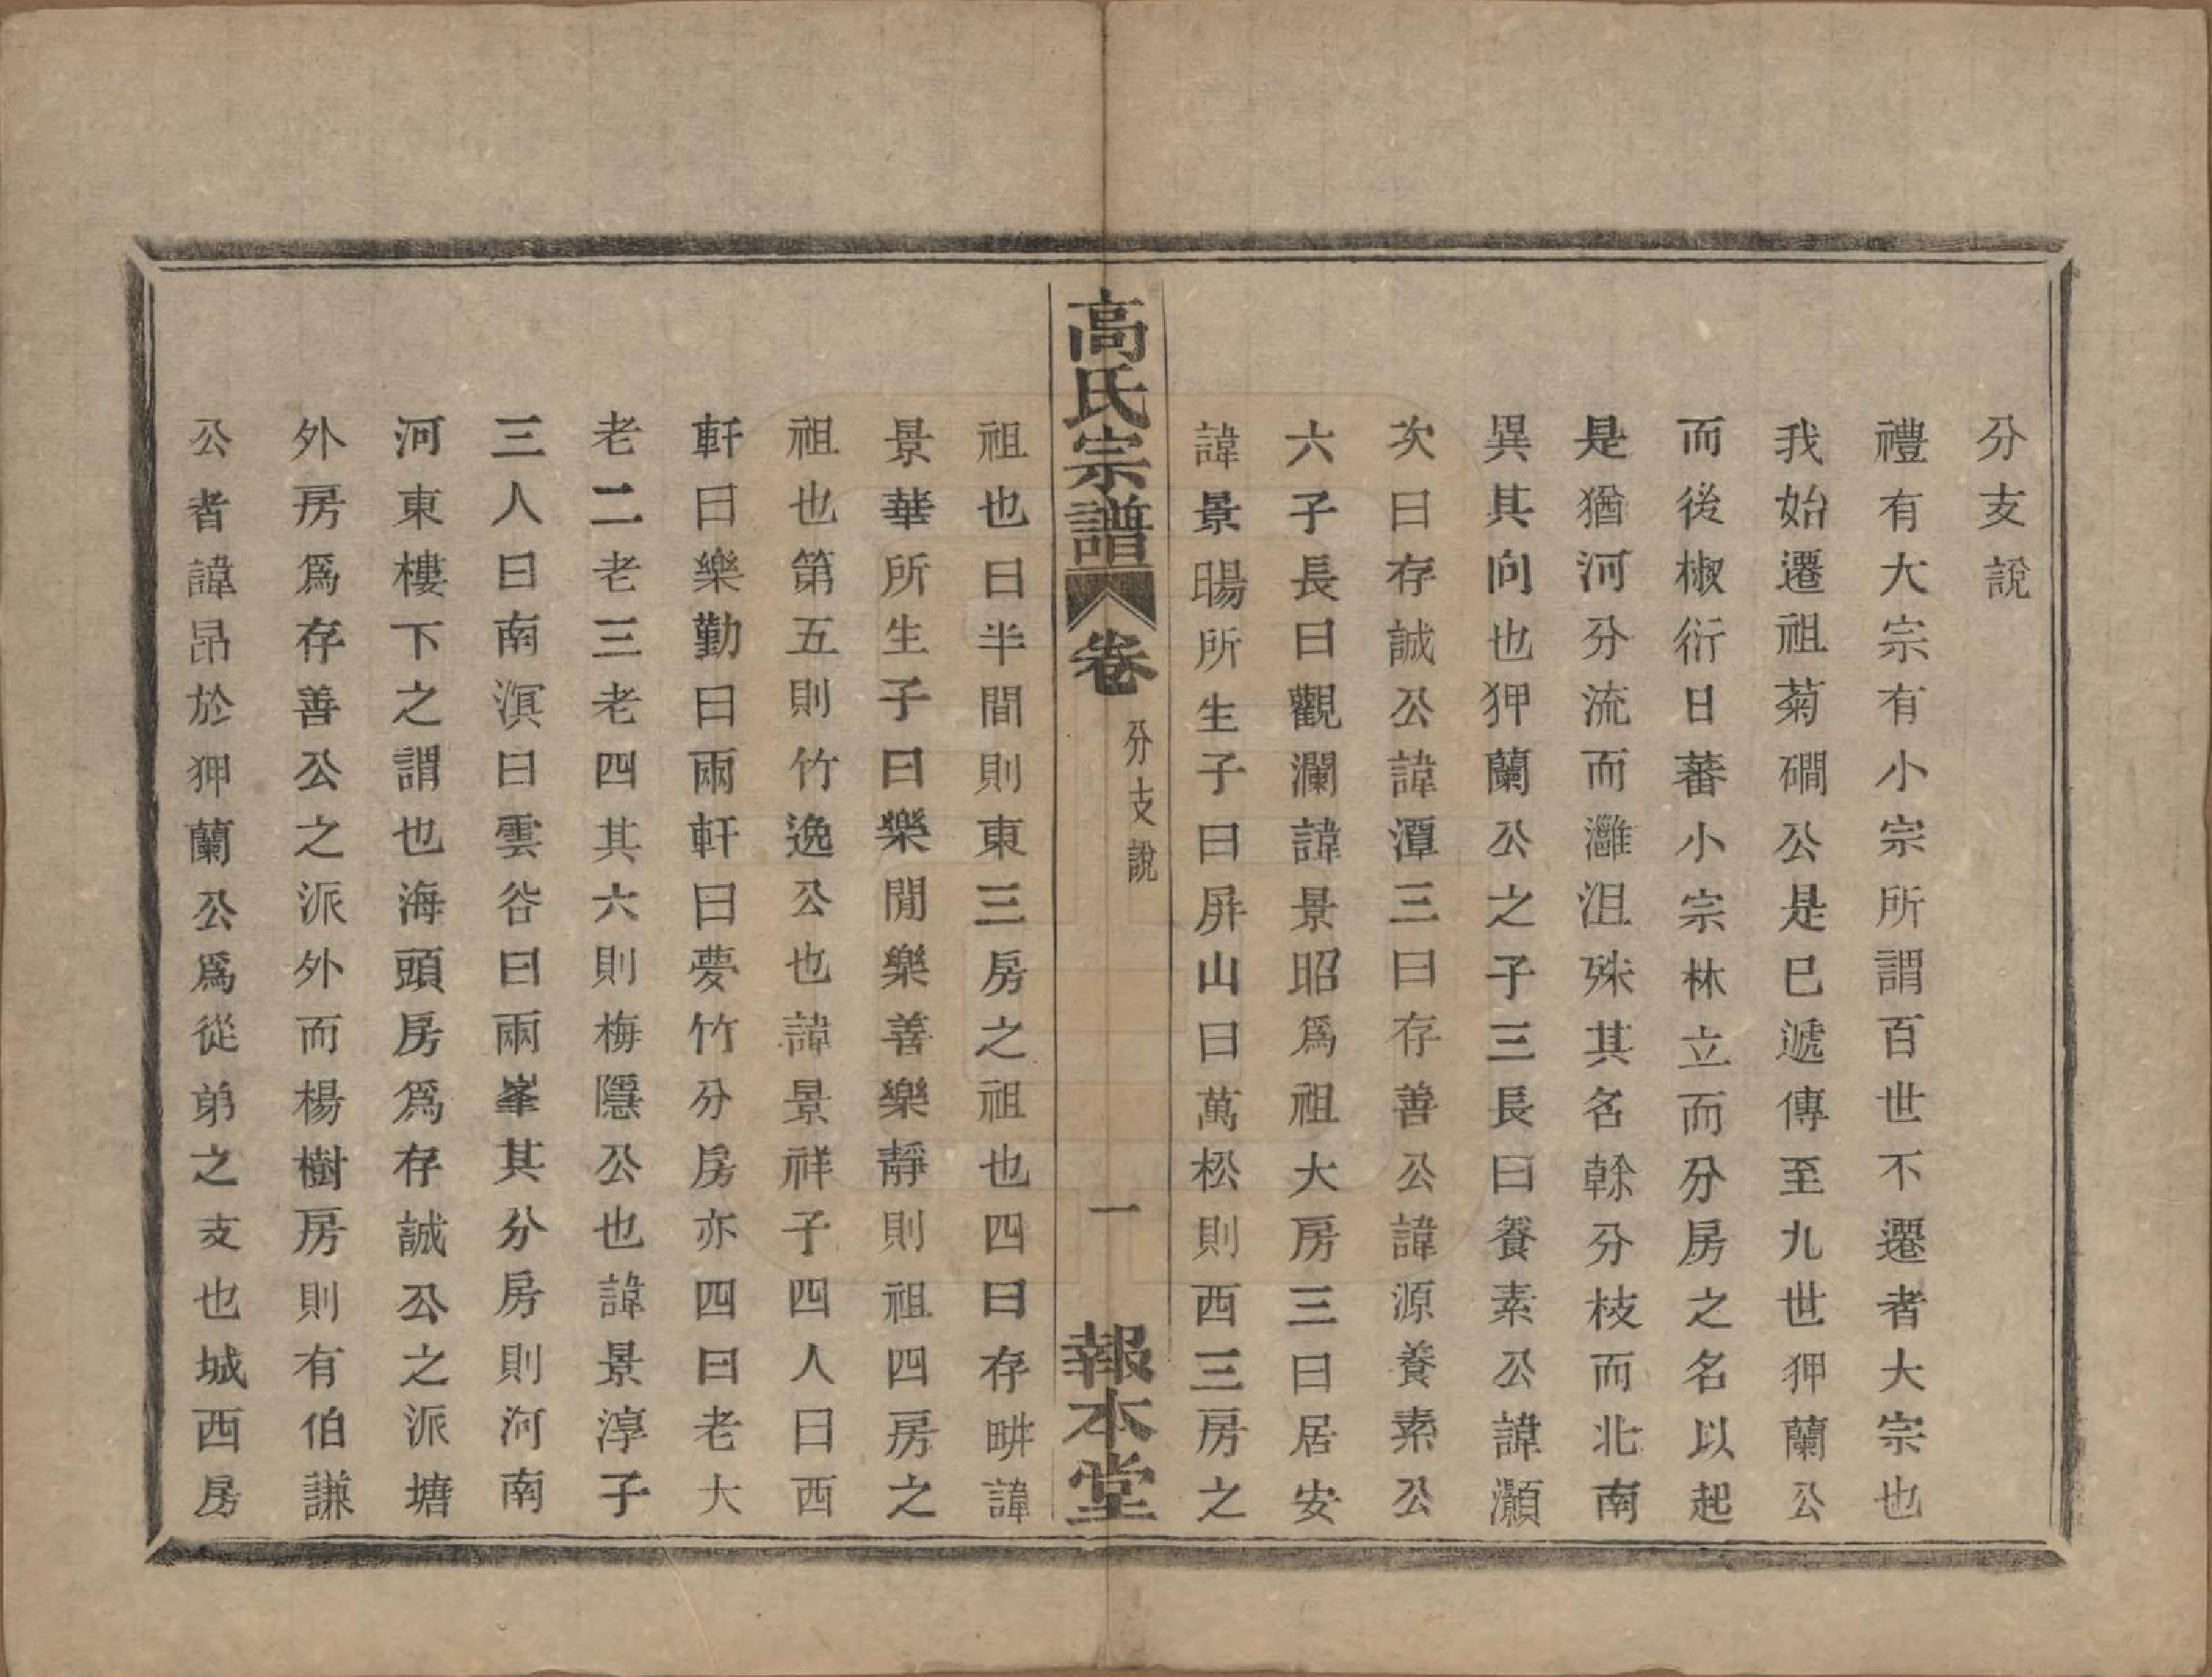 分支說
禮有大宗有小宗所謂百世不遷者大宗也
我始遷祖菊磵公是巳遞傳至九世狎蘭公
而後椒衍日蕃小宗林立而分房之名以起
是猶河分流而灉沮殊其名榦分枝而北南
異其向也狎蘭公之子三長曰養素公諱灝
次曰存誠公諱潭三曰存善公諱源養素公
六子長曰觀瀾諱景昭爲祖大房三曰居安
諱景暘所生子曰屏山曰萬松則西三房之
高氏宗譜
卷
分支說
一
報本堂
祖也曰半間則東三房之祖也四曰存畊諱
景華所生子曰樂閒樂善樂靜則祖四房之
祖也第五則竹逸公也諱景祥子四人曰西
軒曰樂勤曰兩軒曰夢竹分房亦四曰老大
老二老三老四其六則梅隱公也諱景淳子
三人曰南溟曰雲谷曰兩峯其分房則河南
河東樓下之謂也海頭房爲存誠公之派塘
外房爲存善公之派外而楊樹房則有伯謙
公者諱昂於狎蘭公爲從弟之支也城西房